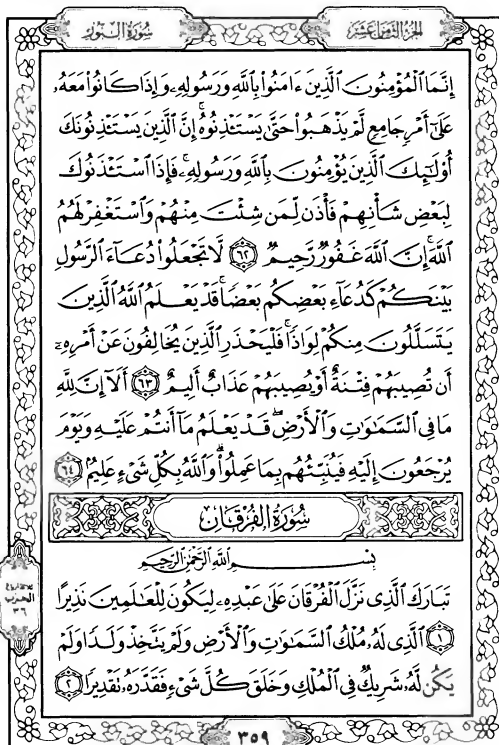 الجزء الثامن عشر
سورة النور
إِنَّمَا ٱلْمُؤْمِنُونَ ٱلَّذِينَ ءَامَنُوا۟ بِٱللَّهِ وَرَسُولِهِۦ وَإِذَا كَانُوا۟ مَعَهُۥ
عَلَىٰٓ أَمْرٍ جَامِعٍ لَّمْ يَذْهَبُوا۟ حَتَّىٰ يَسْتَـْٔذِنُوهُ ۚ إِنَّ ٱلَّذِينَ يَسْتَـْٔذِنُونَكَ
أُو۟لَـٰٓئِكَ ٱلَّذِينَ يُؤْمِنُونَ بِٱللَّهِ وَرَسُولِهِۦ ۚ فَإِذَا ٱسْتَـْٔذَنُوكَ
لِبَعْضِ شَأْنِهِمْ فَأْذَن لِّمَن شِئْتَ مِنْهُمْ وَٱسْتَغْفِرْ لَهُمُ
ٱللَّهَ ۚ إِنَّ ٱللَّهَ غَفُورٌ رَّحِيمٌ ٦٢ لَّا تَجْعَلُوا۟ دُعَآءَ ٱلرَّسُولِ
بَيْنَكُمْ كَدُعَآءِ بَعْضِكُم بَعْضًا ۚ قَدْ يَعْلَمُ ٱللَّهُ ٱلَّذِينَ
يَتَسَلَّلُونَ مِنكُمْ لِوَاذًا ۚ فَلْيَحْذَرِ ٱلَّذِينَ يُخَالِفُونَ عَنْ أَمْرِهِۦٓ
أَن تُصِيبَهُمْ فِتْنَةٌ أَوْ يُصِيبَهُمْ عَذَابٌ أَلِيمٌ ٦٣ أَلَآ إِنَّ لِلَّهِ
مَا فِى ٱلسَّمَـٰوَٰتِ وَٱلْأَرْضِ ۖ قَدْ يَعْلَمُ مَآ أَنتُمْ عَلَيْهِ وَيَوْمَ
يُرْجَعُونَ إِلَيْهِ فَيُنَبِّئُهُم بِمَا عَمِلُوا۟ ۗ وَٱللَّهُ بِكُلِّ شَىْءٍ عَلِيمٌۢ ٦٤
سُورَةُ الفُرْقَانِ
بِسْمِ ٱللَّهِ ٱلرَّحْمَـٰنِ ٱلرَّحِيمِ
تَبَارَكَ ٱلَّذِى نَزَّلَ ٱلْفُرْقَانَ عَلَىٰ عَبْدِهِۦ لِيَكُونَ لِلْعَـٰلَمِينَ نَذِيرًا
١ ٱلَّذِى لَهُۥ مُلْكُ ٱلسَّمَـٰوَٰتِ وَٱلْأَرْضِ وَلَمْ يَتَّخِذْ وَلَدًا وَلَمْ
يَكُن لَّهُۥ شَرِيكٌ فِى ٱلْمُلْكِ وَخَلَقَ كُلَّ شَىْءٍ فَقَدَّرَهُۥ تَقْدِيرًا ٢
الحزب
٣٦
٣٥٩